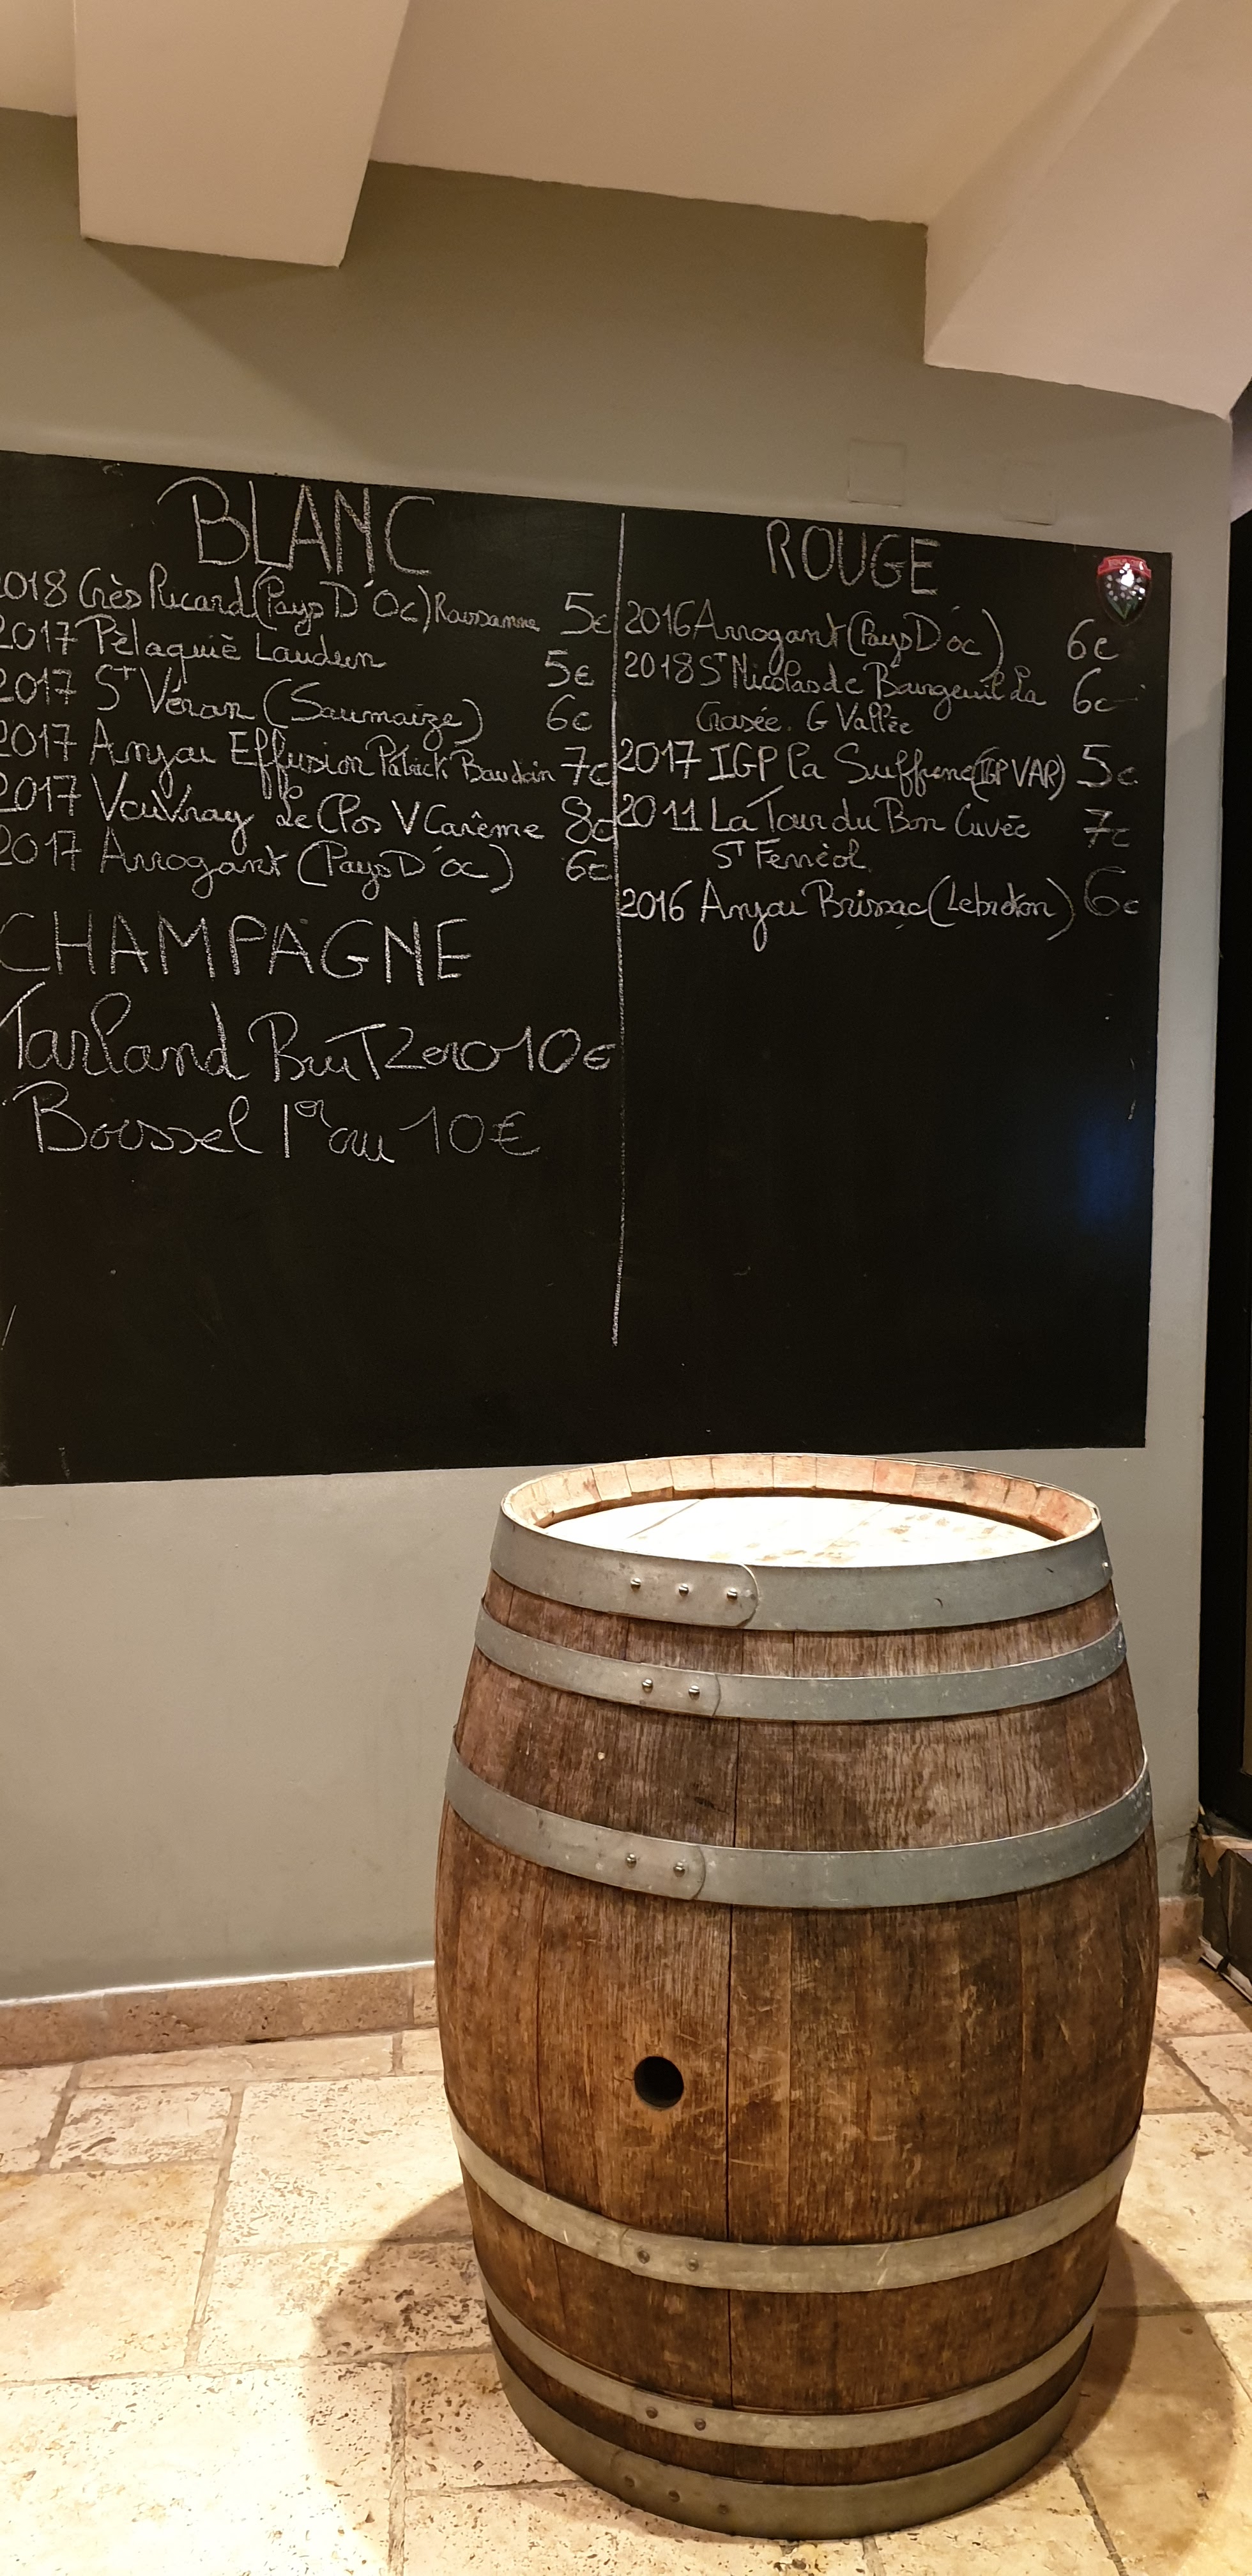 BLANC
2018 Grès Ricard (Pays D'Oc) Roussanne 5€
2017 Pélaquié Laudun 5€
2017 St Véran (Saumaize) 6€
2017 Anjou Effusion Patrick Baudoin 7€
2017 Vouvray Le Clos V Carême 8€
2017 Arrogant (Pays D'oc) 6€
CHAMPAGNE
Tarland Brut Zero 10€
Boussel 1er cru 10€
ROUGE
2016 Arrogant (Pays D'oc) 6€
2018 St Nicolas de Bourgeuil La 6€
Croisée. G Vallée
2017 IGP La Suffrene (IGP VAR) 5€
2011 La Tour du Bon Cuvée 7€
St Ferréol
2016 Anjou Brissac (Lebreton) 6€